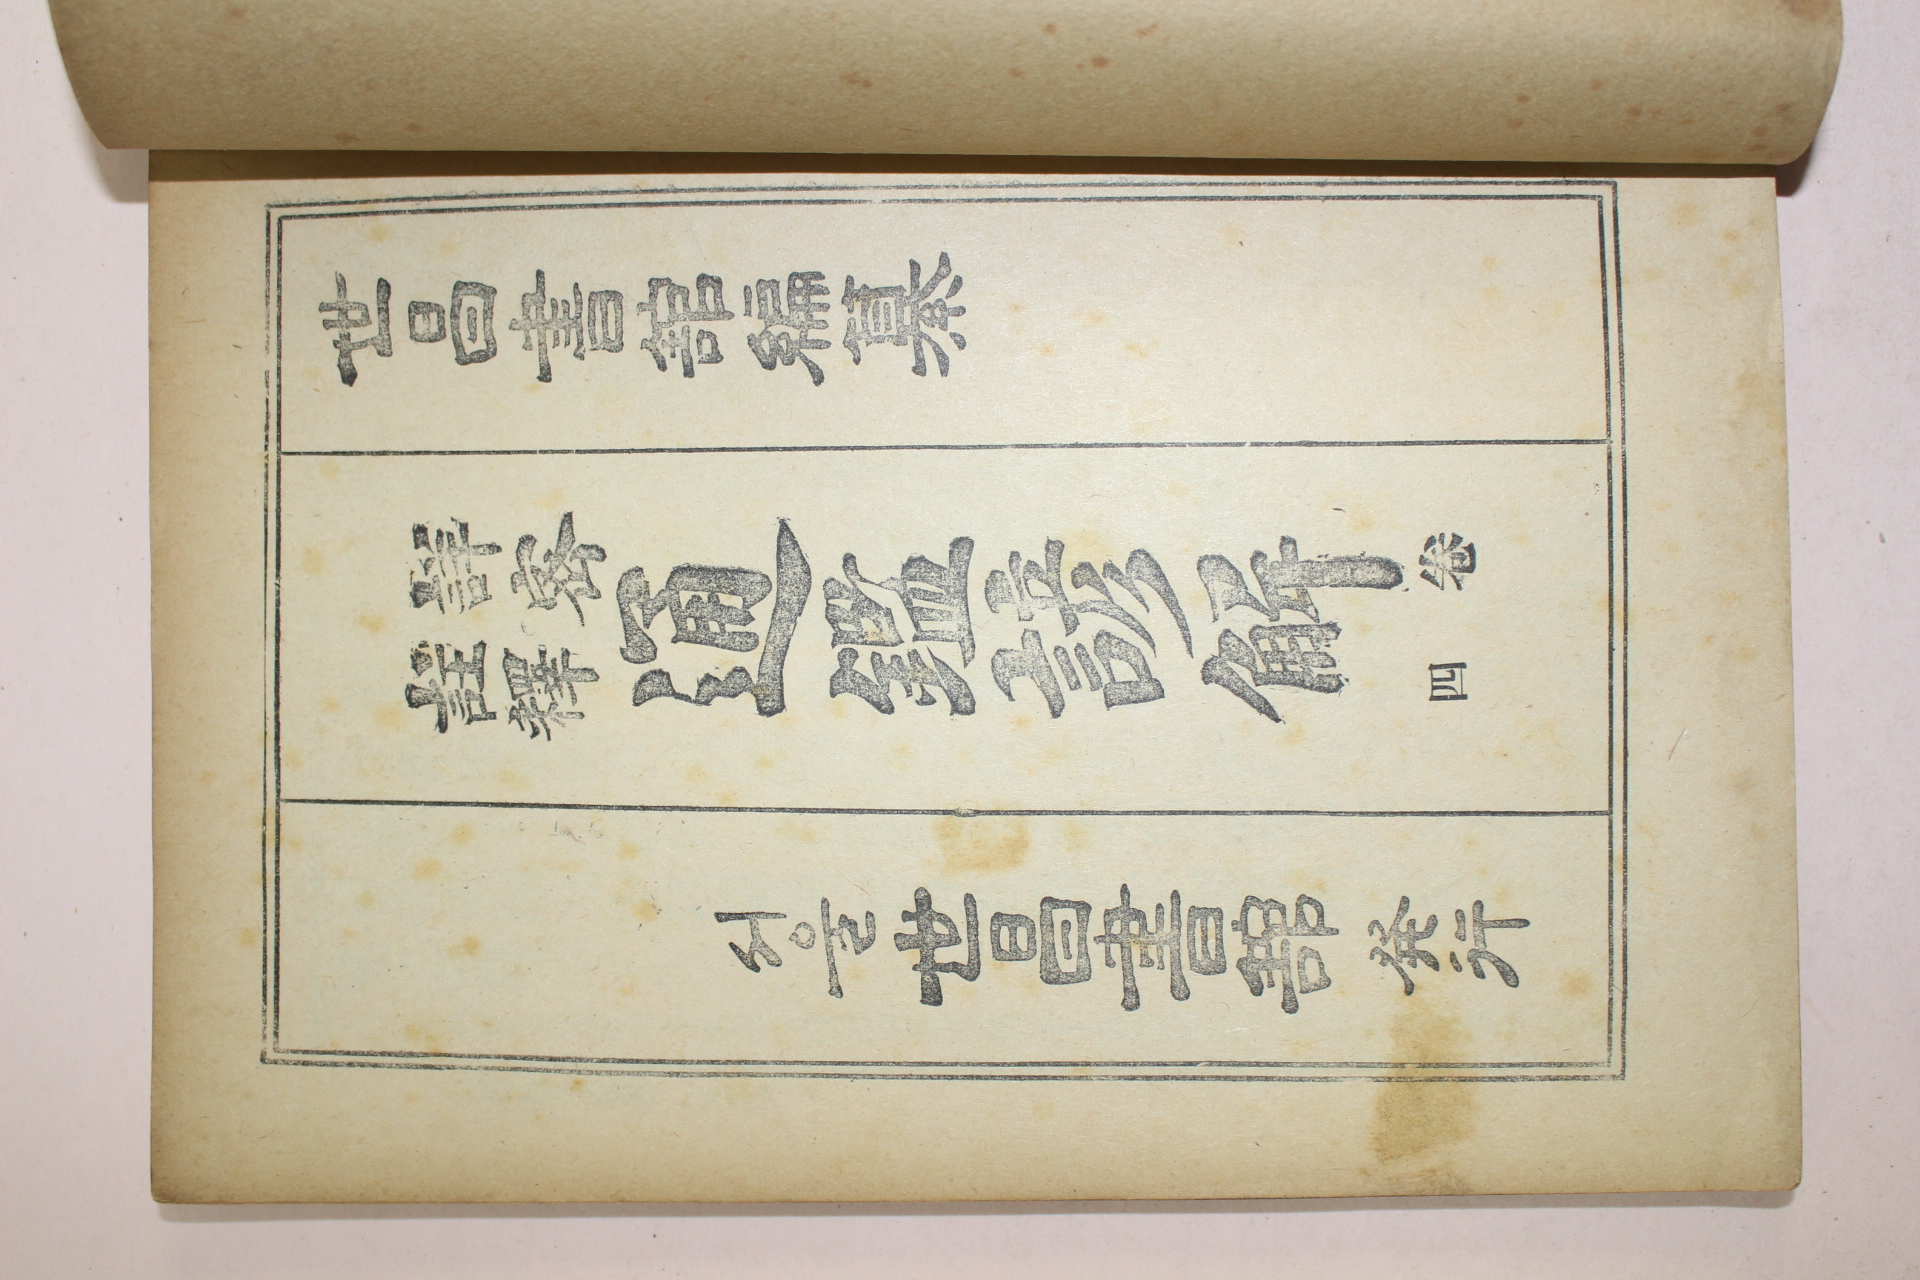 世昌書舘編纂
詳密
註釋
通鑑諺解 卷四
서울 世昌書舘 発行